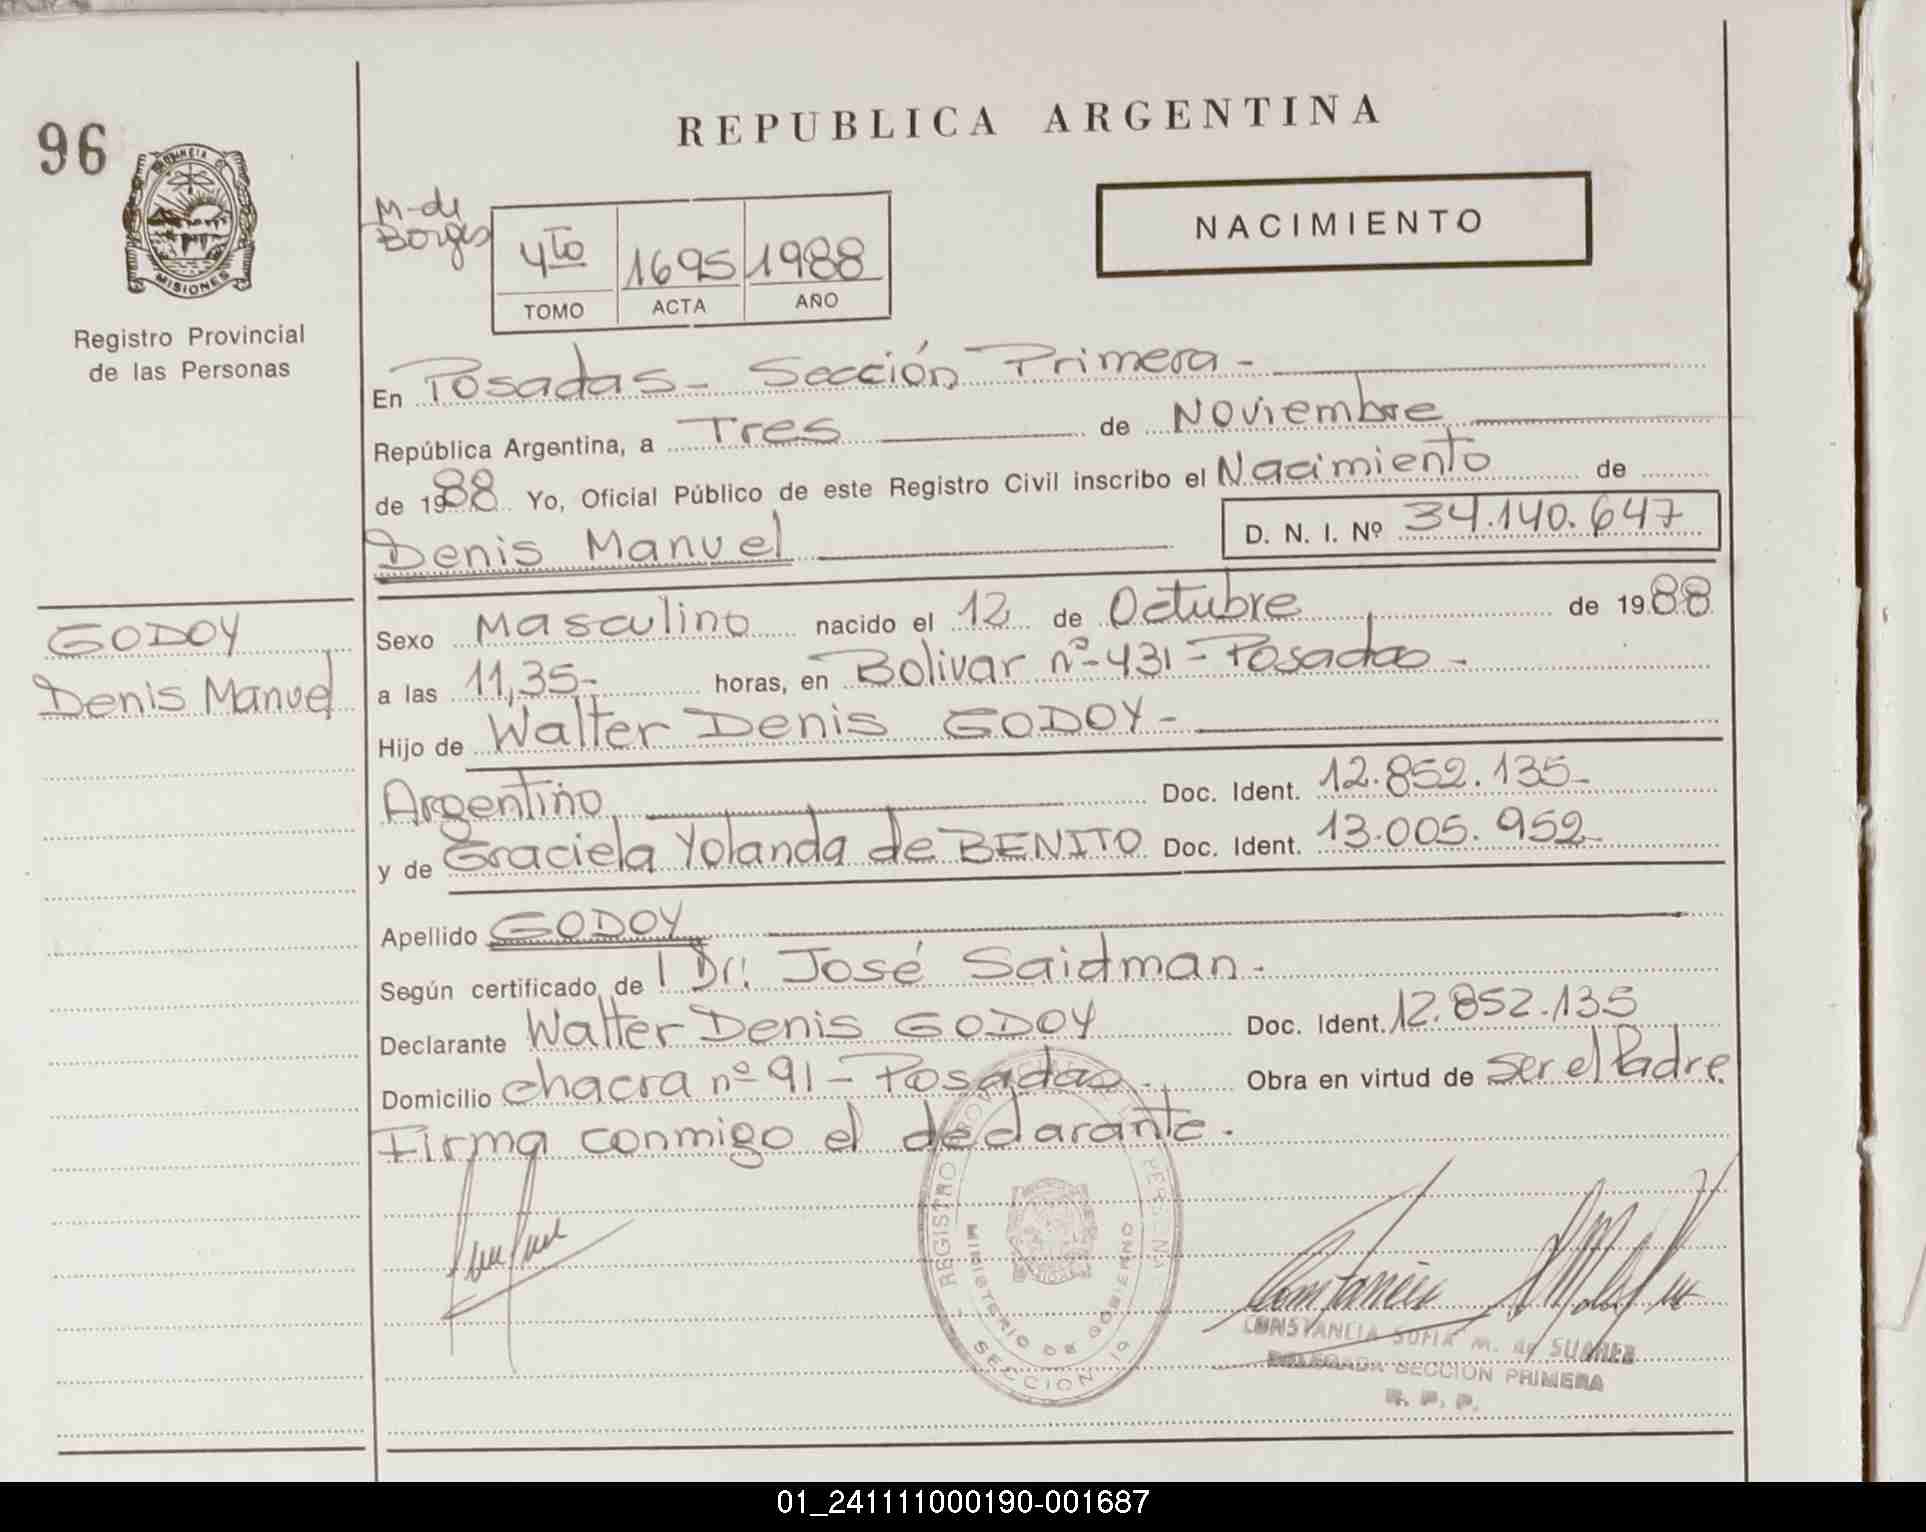 96
PROVINCIA DE
MISIONES
Registro Provincial
de las Personas
REPUBLICA ARGENTINA
M. de
Borges
4to 1695 1988
TOMO ACTA AÑO
NACIMIENTO
En Posadas - Sección Primera -
República Argentina, a Tres de Noviembre
de 1988 Yo, Oficial Público de este Registro Civil inscribo el Nacimiento de
Denis Manuel D. N. I. Nº 34.140.647
GODOY
Denis Manuel
Sexo Masculino nacido el 12 de Octubre de 1988
a las 11,35- horas, en Bolivar nº-431 - Posadas -
Hijo de Walter Denis GODOY -
Argentino Doc. Ident. 12.852.135-
y de Graciela Yolanda de BENITO Doc. Ident. 13.005.952-
Apellido GODOY
Según certificado de l Dr: José Saidman -
Declarante Walter Denis GODOY Doc. Ident. 12.852.135
Domicilio chacra nº 91 - Posadas - Obra en virtud de ser el Padre
Firma conmigo el declarante.
REGISTRO PROVINCIAL DE LAS PERSONAS
MINISTERIO DE GOBIERNO
SECCION 1a
CONSTANCIA SOFIA M. de SUAREZ
DELEGADA SECCION PRIMERA
R. P. P.
01_241111000190-001687